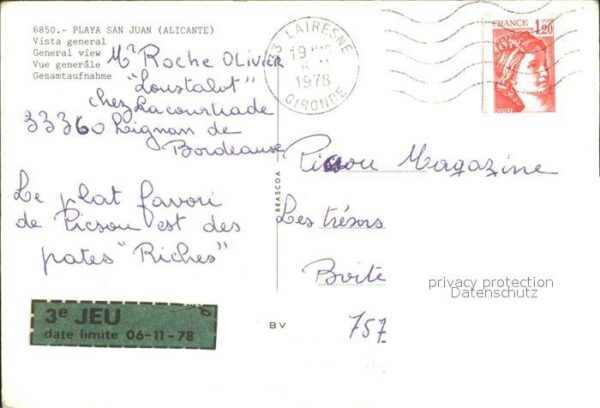 6850.- PLAYA SAN JUAN (ALICANTE)
Vista general
General view
Vue generále
Gesamtaufnahme
Mr Roche Olivier
"Loustalot"
chez Lacourtiade
33360 Lignan de
Bordeaux.
Le plat favori
de Picsou est des
pates "Riches"
3e JEU
date limite 06-11-78
33 LATRESNE
19 H
1978
GIRONDE
FRANCE 1,20
POSTES
BEASCOA
BV
Picsou Magazine
Les trésors
Boite
757
privacy protection
Datenschutz